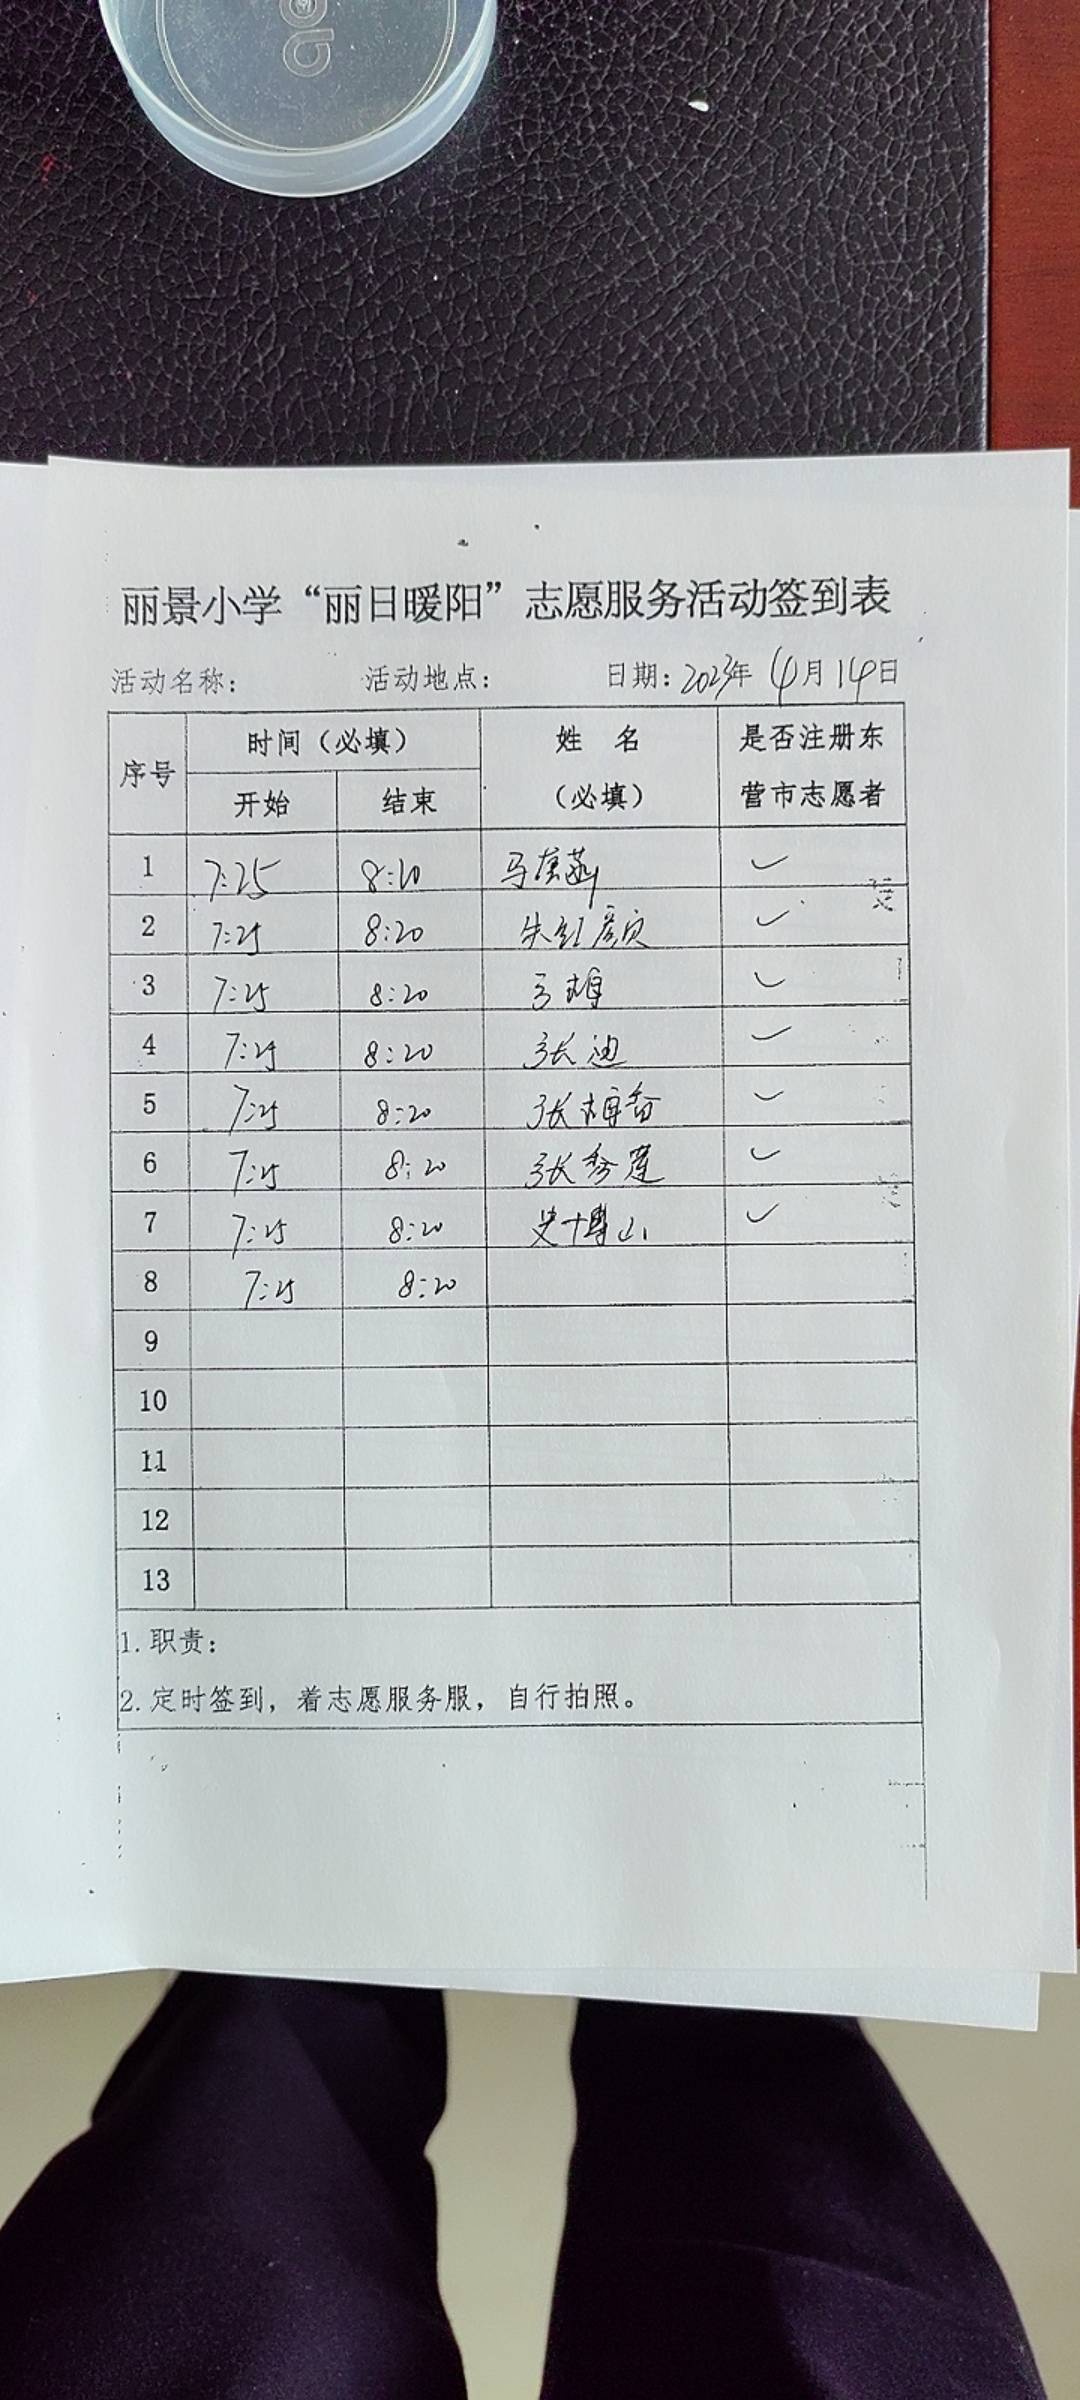 丽景小学“丽日暖阳”志愿服务活动签到表
活动名称： 活动地点： 日期：2023年 4月 14日
序号 时间（必填） 姓 名（必填） 是否注册东营市志愿者
开始 结束
1 7:25 8:20 马
2 7:25 8:20 朱红颜
3 7:25 8:20
4 7:25 8:20 张迪
5 7:25 8:20 张梅香
6 7:25 8:20 张秀莲
7 7:25 8:20
8 7:25 8:20
9
10
11
12
13
1. 职责：
2. 定时签到，着志愿服务服，自行拍照。